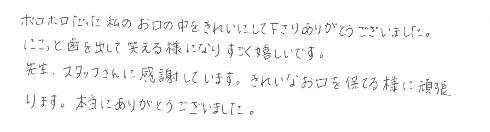 ボロボロだった私のお口の中をきれいにして下さりありがとうございました。
にこっと歯を出して笑える様になりすごく嬉しいです。
先生、スタッフさんに感謝しています。きれいなお口を保てる様に頑張
ります。本当にありがとうございました。